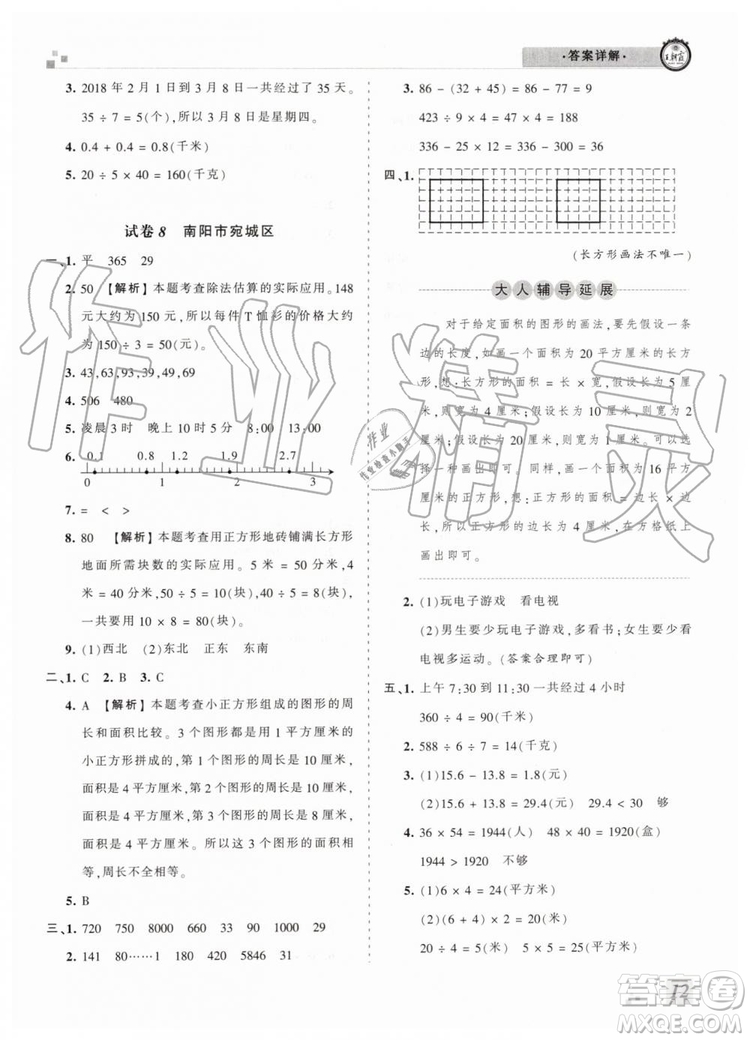 ·答案详解·
王朝霞
3. 2018 年 2 月 1 日到 3 月 8 日一共经过了 35 天。
35 ÷ 7 = 5(周)　3 月 8 日是星期四。
4. 0.4 + 0.4 = 0.8(千米)
5. 20 ÷ 5 × 40 = 160(千克)
试卷 8　南阳市宛城区
一、1. 平　365　29
2. 50　【解析】本题考查除法估算的实际应用。148
元大约为 150 元,所以每件 T 恤衫的价格大约
为 150 ÷ 3 = 50(元)。
3. 43,63,93,39,49,69
4. 506　480
5. 凌晨 3 时　晚上 10 时　8:00　13:00
6. 0.1　0.8　1.2　1.9　2.4　3.1
0　1　2　3
7. =　<　<
8. 80　【解析】本题考查用正方形地砖铺满长方形
地面所需块数的实际应用。5 米 = 50 分米,
4 米 = 40 分米,50 ÷ 5 = 10(块),40 ÷ 5 = 8(块),
一共要用 10 × 8 = 80(块)。
9. (1)西北　(2)东北　正东　东南
二、1. C　2. B　3. C
4. A　【解析】本题考查小正方形组成的图形的周
长和面积比较。3 个图形都是由 4 个 1 平方厘米的
小正方形拼成的,第 1 个图形的周长是 10 厘米,
面积是 4 平方厘米,第 2 个图形的周长是 10 厘米,
面积是 4 平方厘米,第 3 个图形的周长是 8 厘米,
面积是 4 平方厘米。所以这 3 个图形的面积相
等,周长不全相等。
5. B
三、1. 720　750　8000　660　930　1000　29
2. 141　80……1　1950　420　5846　31
3. 86 - (32 + 45) = 86 - 77 = 9
423 ÷ 9 × 4 = 47 × 4 = 188
336 - 25 × 12 = 336 - 300 = 36
四、1.
(长方形画法不唯一)
大人辅导延展
对于给定面积的图形的画法,要先假设一条
边的长度,如画一个面积是 20 平方厘米的长方
形,想:长方形的面积 = 长 × 宽,假设长是 10 厘
米,则宽是 2 厘米;假设长是 20 厘米,则宽是 1 厘
米,任选一种画出即可。同样,画一个面积为 16 平
方厘米的正方形,想:正方形的面积 = 边长 × 边
长,4 × 4 = 16,正方形的边长为 4 厘米,在方格纸上
画出即可。
2. (1)玩电子游戏　看电视
(2)男生要少玩电子游戏,多看书;女生要少看
电视多运动。(答案合理即可)
五、1. 上午 7:30 到 11:30 一共经过 4 小时
360 ÷ 4 = 90(千米)
2. 588 ÷ 6 ÷ 7 = 14(千克)
3. (1)15.6 - 13.8 = 1.8(元)
(2)15.6 + 13.8 = 29.4(元)　29.4 < 30　够
4. 36 × 54 = 1944(人)　48 × 40 = 1920(盒)
1944 > 1920　不够
5. (1)6 × 4 = 24(平方米)
(2)(6 + 4) × 2 = 20(米)
20 ÷ 4 = 5(米)　5 × 5 = 25(平方米)
作业精灵
答案圈
MXQE.COM
12